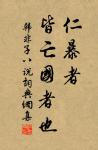 仁暴者
皆亡國者也
韩非子八说词典网集